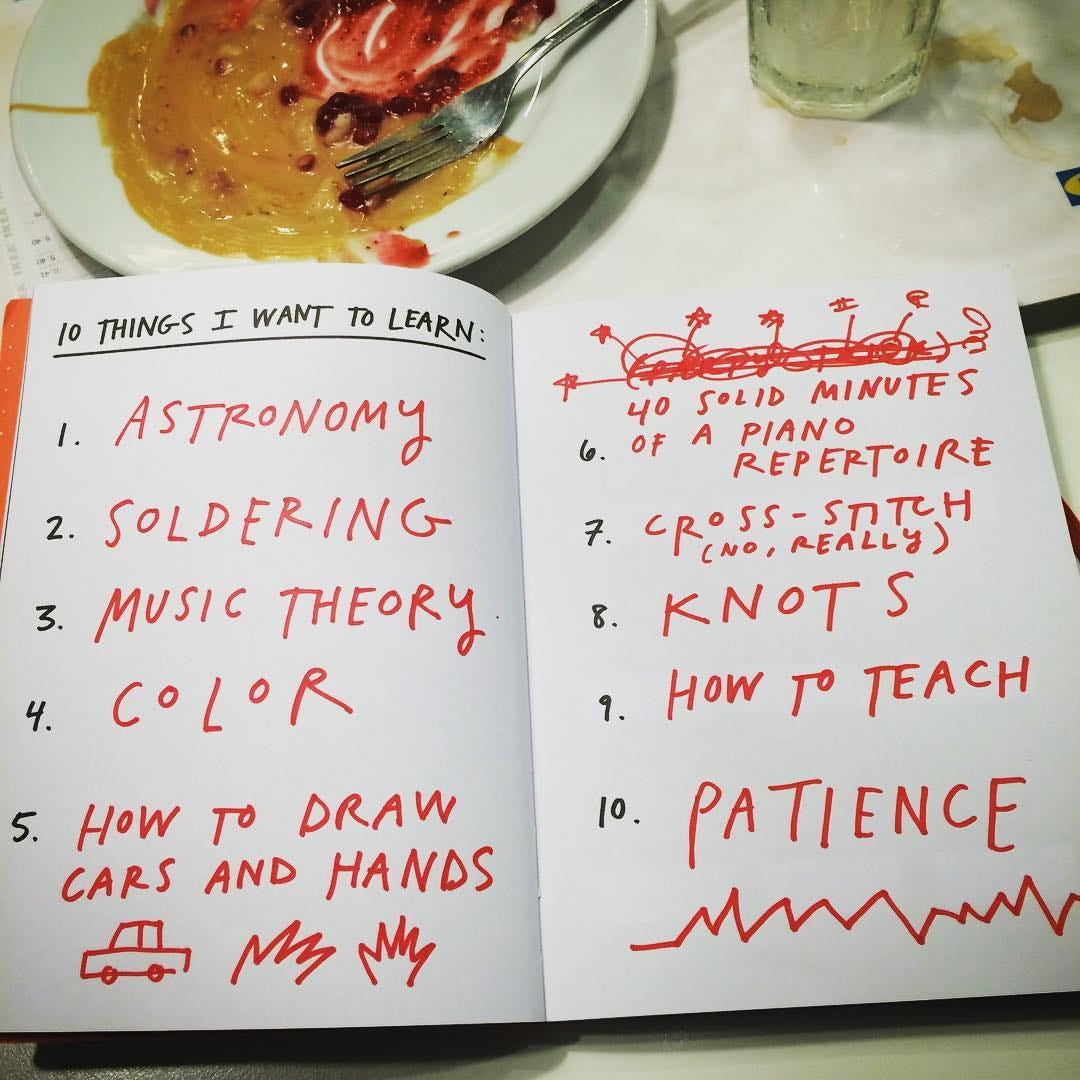 10 THINGS I WANT TO LEARN:
1. ASTRONOMY
2. SOLDERING
3. MUSIC THEORY.
4. COLOR
5. HOW TO DRAW
CARS AND HANDS
40 SOLID MINUTES
6. OF A PIANO
REPERTOIRE
7. CROSS-STITCH
(NO, REALLY)
8. KNOTS
9. HOW TO TEACH
10. PATIENCE